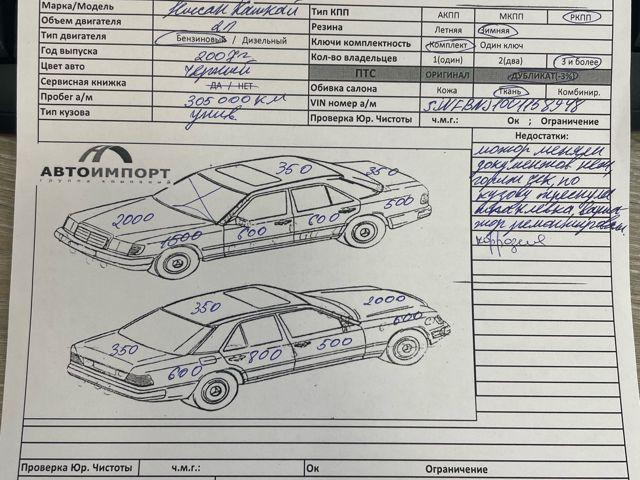 Марка/Модель Ниссан Кашкай Тип КПП АКПП МКПП РКПП
Объем двигателя 2л Резина Летняя Зимняя
Тип двигателя Бензиновый / Дизельный Ключи комплектность Комплект Один ключ
Год выпуска 2007г Кол-во владельцев 1(один) 2(два) 3 и более
Цвет авто черный ПТС ОРИГИНАЛ ДУБЛИКАТ(-3%)
Сервисная книжка ДА / НЕТ Обивка салона Кожа Ткань Комбинир.
Пробег а/м 305 000 км VIN номер а/м
Тип кузова унив Проверка Юр. Чистоты ч.м.г.: Ок ; Ограничение
Недостатки:
мотор меняли
документов нет,
горит чек, по
кузову треснула
шпаклевка,
мотор ремонтирован,
коррозия
АВТОИМПОРТ
группа компаний
350 350
2000 500
1600 600 600
350 2000
350 600
600 800 500
Проверка Юр. Чистоты ч.м.г.: Ок Ограничение